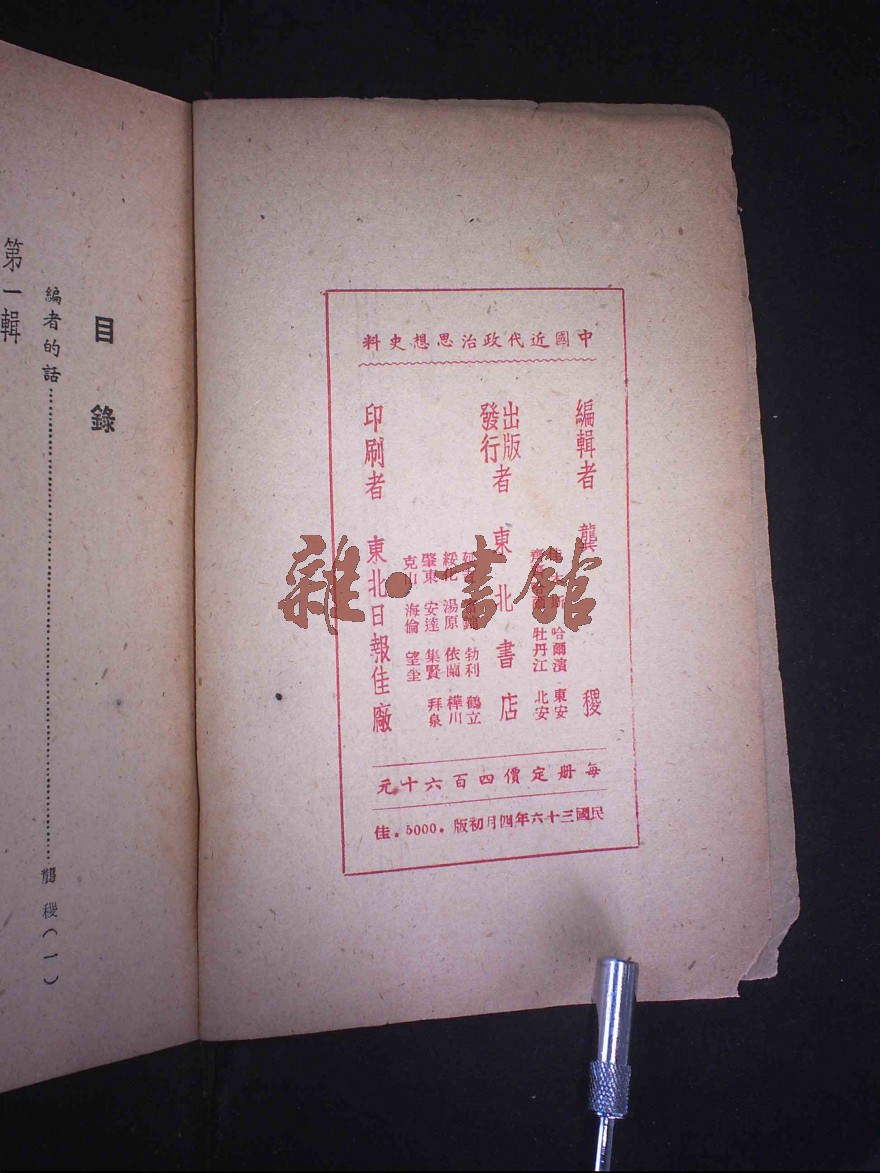 中國近代政治思想史料
編輯者 龔稷
佳木斯 哈爾濱 東安
齊齊哈爾 牡丹江 北安
出版
發行者 東北書店
富錦 勃利 鶴立
綏化 湯原 依蘭 樺川
肇東 安達 集賢 拜泉
克山 海倫 望奎
印刷者 東北日報佳廠
每册定價四百六十元
民國三十六年四月初版。5000.佳
雜·書館
目錄
編者的話……龔稷(一)
第一輯